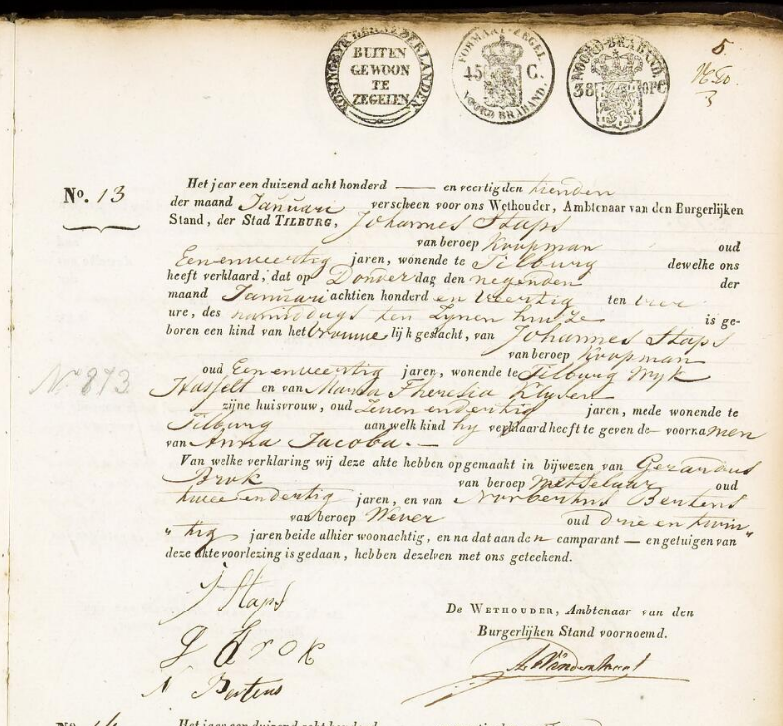 KONINGRYK DER NEDERLANDEN
BUITEN
GEWOON
TE
ZEGELEN
FORMAAT-ZEGEL
45 C.
NOORD BRABAND.
NOORD-BRABAND.
38 OPC
5
No. 13
Het jaar een duizend acht honderd — en veertig den tienden
der maand Januari verscheen voor ons Wethouder, Ambtenaar van den Burgerlijken
Stand, der Stad TILBURG, Johannes Staps
van beroep Koopman oud
Eenenveertig jaren, wonende te Tilburg dewelke ons
heeft verklaard, dat op Donderdag den negenden der
maand Januari achtien honderd en veertig ten vier
ure, des namiddags ten zynen huize is ge-
boren een kind van het vrouwelijk geslacht, van Johannes Staps
van beroep Koopman
No 873
oud Eenenveertig jaren, wonende te Tilburg Wyk
Hasselt en van Maria Theresia
zijne huisvrouw, oud Zevenendertig jaren, mede wonende te
Tilburg aan welk kind hy verklaard heeft te geven de — voornamen
van Anna Jacoba. —
Van welke verklaring wij deze akte hebben opgemaakt in bijwezen van Gerardus
Brok van beroep Metselaar oud
tweeendertig jaren, en van Norbertus Bertens
van beroep Wever oud Drie en twin"
"tig jaren beide alhier woonachtig, en na dat aan den camparant — en getuigen van
deze akte voorlezing is gedaan, hebben dezelven met ons geteekend.
J Staps
De WETHOUDER, Ambtenaar van den
Burgerlijken Stand voornoemd.
G Brok
N Bertens
Het jaar een duizend acht honderd